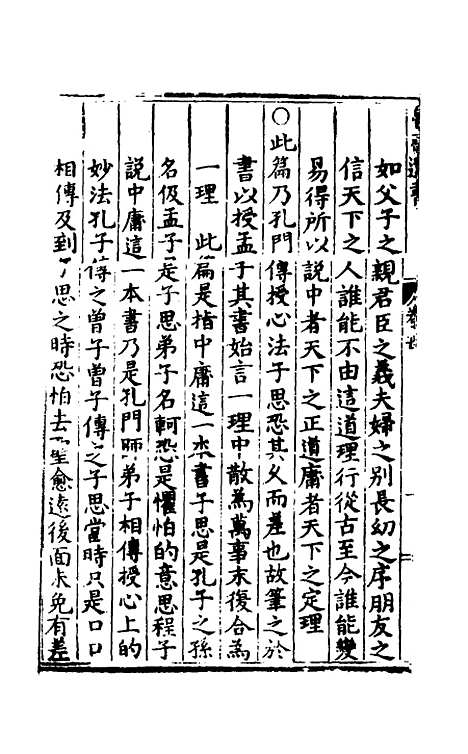 如父子之親君臣之義夫婦之別長幼之序朋友之
信天下之人誰能不由這道理行從古至今誰能變
易得所以說中者天下之正道庸者天下之定理
○此篇乃孔門傳授心法子思恐其久而差也故筆之於
書以授孟子其書始言一理中散為萬事末復合為
一理 此篇是指中庸這一本書子思是孔子之孫
名伋孟子是子思弟子名軻恐是懼怕的意思程子
說中庸這一本書乃是孔門師弟子相傳授心上的
妙法孔子傳之曾子曾子傳之子思當時只是口口
相傳及到子思之時恐怕去聖愈遠後面未免有差